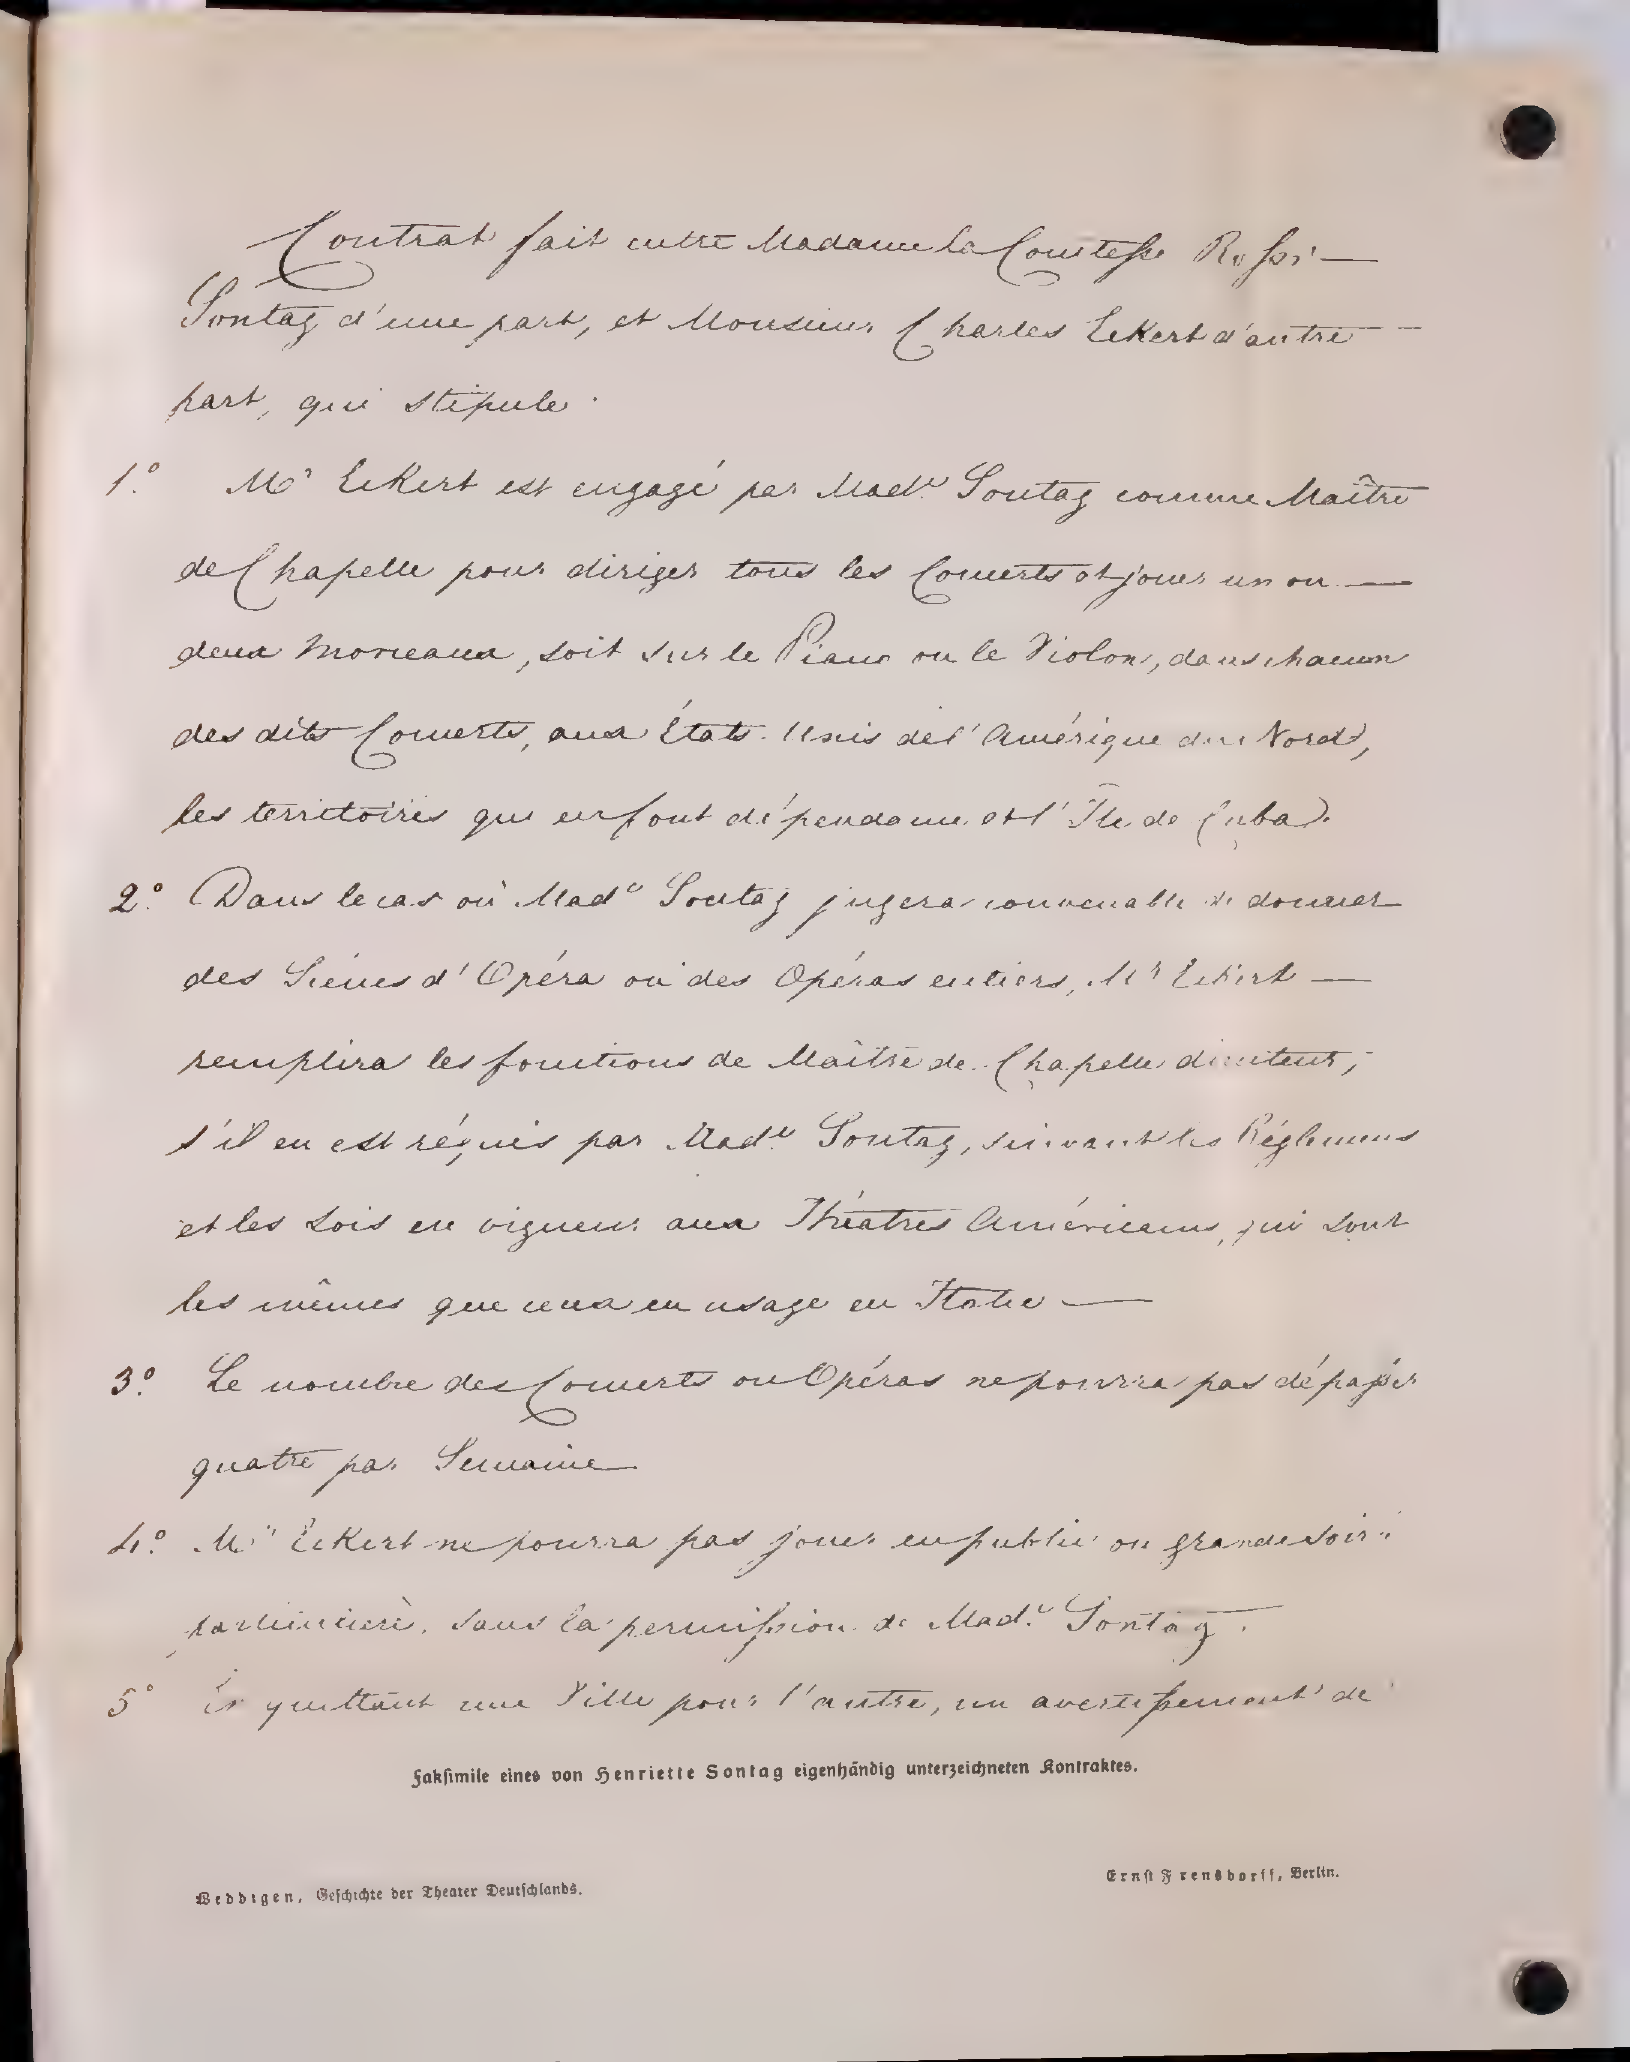 Contrat fait entre Madame la Comtesse Rossi —
Sontag d'une part, et Monsieur Charles Eckert d'autre —
part, qui stipule.
1.° Mr Eckert est engagé par Made Sontag comme Maître
de Chapelle pour diriger tous les Concerts et jouer un ou —
deux morceaux, soit sur le Piano ou le Violon, dans chacun
des dits Concerts, aux États-Unis de l'Amérique du Nord,
les territoires qui en font dépendance et l'Île de Cuba.
2.° Dans le cas où Made Sontag jugera convenable de donner
des Scènes d'Opéra ou des Opéras entiers, Mr Eckert —
remplira les fonctions de Maître de Chapelle directeur,
s'il en est réquis par Made Sontag, suivant les Réglemens
et les Lois en vigueur aux Théatres Américains, qui sont
les mêmes que ceux en usage en Italie —
3.° Le nombre des Concerts ou Opéras ne pourra pas dépasser
quatre par Semaine
4.° Mr Eckert ne pourra pas jouer en public ou grande soirée
particulière, sans la permission de Made Sontag.
5° En quittant une Ville pour l'autre, un avertissement de
Faksimile eines von Henriette Sontag eigenhändig unterzeichneten Kontraktes.
Weddigen, Geschichte der Theater Deutschlands.
Ernst Frensdorff, Berlin.